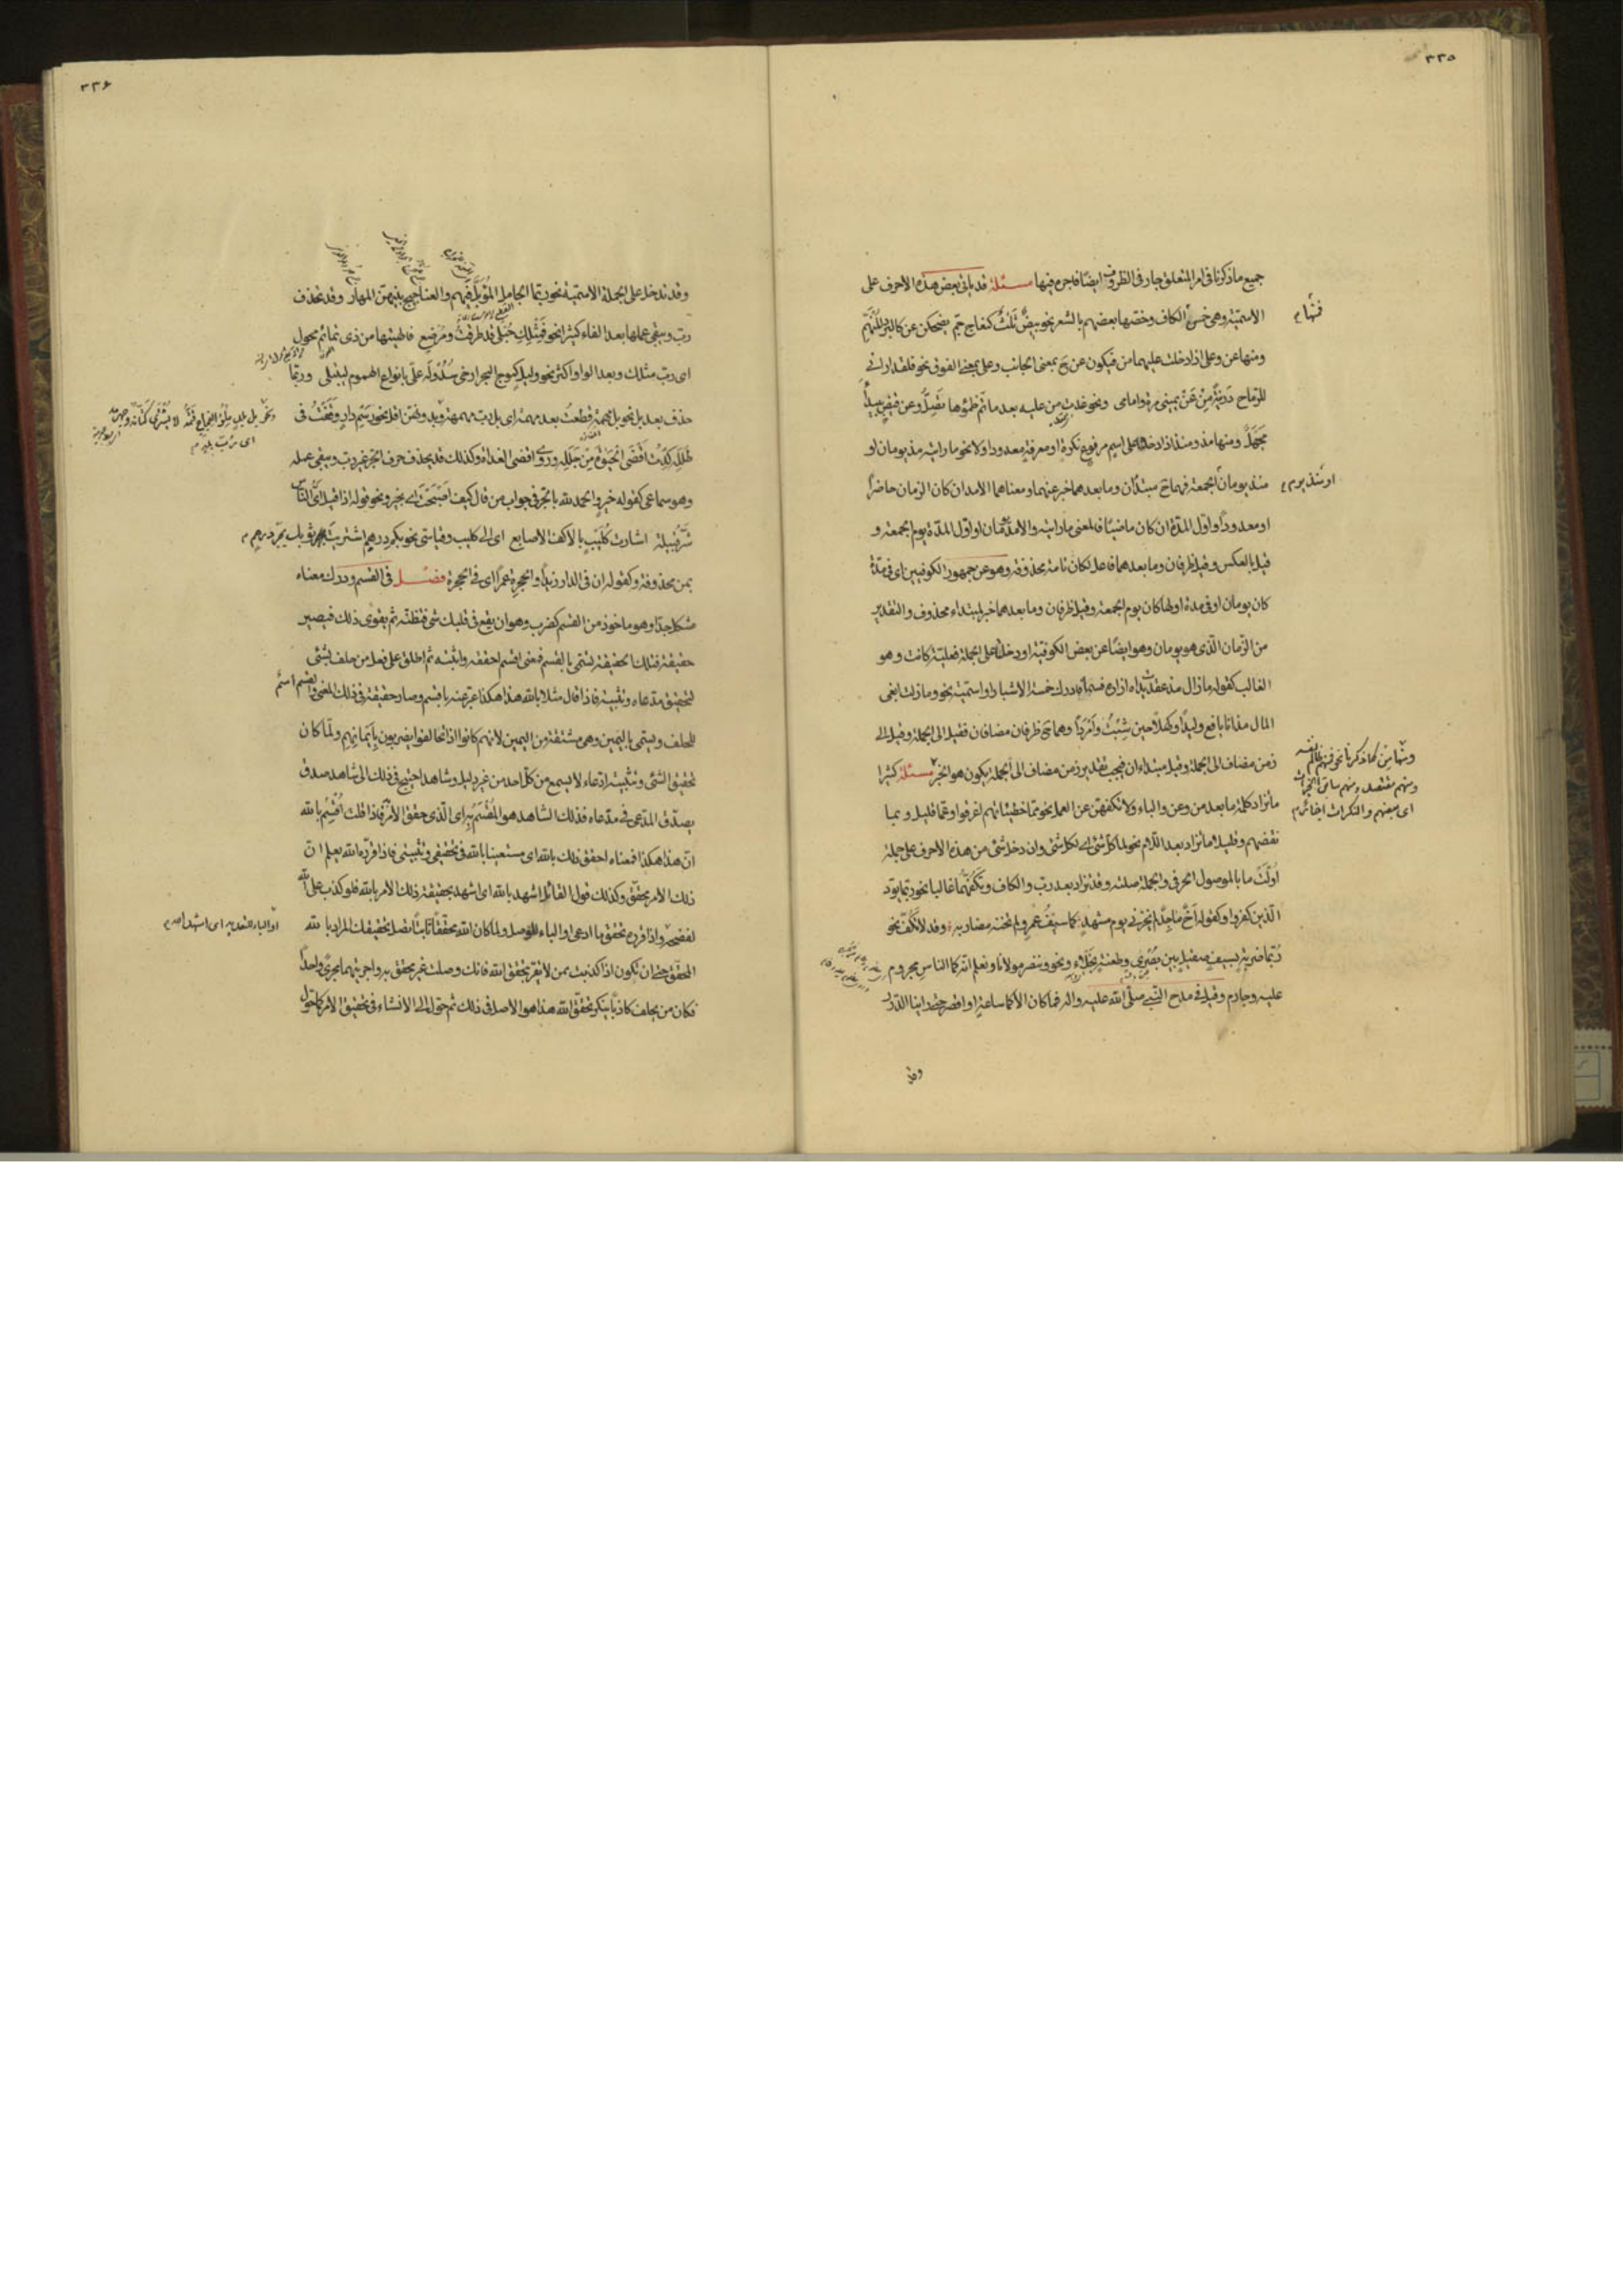 ٣٣٥
جميع ما ذكرنا فى امر المتعلق جار فى الظروف ايضًا فاجره فيها مسئلة قد ياتى بعض هذه الاحرف على
الاسمية وهى خمس الكاف وخصّها بعضهم بالشعر نحو بيضٌ ثلثٌ كنعاج جمّ يضحكن عن كالبرد المنهمّ
فمنها م
ومنها عن وعلى اذا دخلت عليهما من فيكون عن ح بمعنى الجانب وعلى بمعنى الفوق نحو فلقد ارانى
للرّماح دريئةً مِنْ عَنْ يمينى مرة وامامى ونحو غدت من عليه بعد ما تم ظمؤها تصلّ وعن قيض ببيداءَ
مَجْهَل ومنها مذ ومنذ اذا دخلا على اسم مرفوع نكرة او معرفة معدود او لا نحو ما رايته مذ يومان او
منذ يومان الجمعة فهما ح مبتدان وما بعدهما خبر عنهما ومعناهما الامد ان كان الزمان حاضرًا
او معدودًا واول المدّة ان كان ماضيًا فالمعنى ما رايته والامد يومان او اول المدّة يوم الجمعة و
قيل بالعكس وقيل ظرفان وما بعدهما فاعل لكان تامة محذوفة وهو عن جمهور الكوفيين اى فى مدّة
كان يومان او فى مدة اولها كان يوم الجمعة وقيل ظرفان وما بعدهما خبر لمبتداء محذوف والتقدير
من الزمان الّذى هو يومان وهو ايضًا عن بعض الكوفية او دخلا على الجملة فعلية كانت وهو
الغالب كقوله ما زال مذ عقدت يداه ازاره فسما فادرك خمسة الاشبار او اسمية نحو وما زلت ابغى
المال مذ انا يافع وليدًا وكهلًا حين شبتُ وامردًا وهما ح ظرفان مضافان فقيل الى الجملة وقيل الى
زمن مضاف الى الجملة وقيل مبتداءان فيجب تقدير زمن مضاف الى الجملة يكون هو الخبر مسئلة كثيرا
ما تزاد كلمة ما بعد من وعن والباء ولا تكفهنّ عن العمل نحو ممّا خطيئاتهم اغرقوا وعمّا قليل وبما
نقضهم وقليلا ما تزاد بعد اللام نحو لما كل شئ اى لكل شئ وان دخل شئ من هذه الاحرف على جملة
اوّلت ما بالموصول الحرفى والجملة صلته وقد تزاد بعد ربّ والكاف وتكفّهما غالبا نحو ربّما يودّ
الّذين كفروا وكقوله اخٌ ماجدٌ لم يخزنى يوم مشهد كما سيفُ عمرو لم تخنه مضاربه وقد لا تكفّ نحو
ربّما ضربةٍ بسيفٍ صقيل بين بصرى وطعنةٍ نجلاء ونحو وننصر مولانا ونعلم انّه كما الناسِ مجروم
عليه وجارم وقيل فى مدح النّبىّ صلّى الله عليه واله
وقد
٣٣۶
وقد تدخل على الجملة الاسمية نحو ربّما الجامل المؤبّل فيهم والعناجيج بينهنّ المهار وقد تحذف
ربّ ويبقى عملها بعد الفاء كثيرًا نحو فمثلكِ حُبلى قد طرقتُ ومرضع فالهيتها من ذى تمائم محول
اى ربّ مثلك وبعد الواو اكثر نحو وليل كموج البحر ارخى سُدُوله علىّ بانواع الهموم ليبتلى وربّما
حذف بعد بل نحو بل مهمةٍ قطعتُ بعد مهمه اى بل ربّ مهمه وبدونهنّ اقل نحو رسمِ دارٍ وقفتُ فى
طَلَلِه كدتُ اقضى الحيوة من جلله وروى اقضى الغداة وكذلك قد يحذف حرف الجر غير ربّ ويبقى عمله
وهو سماعى كقوله خيرٍ والحمد لله بالجرّ فى جواب من قال كيف اصبحت اى بخير ونحو قوله اذا قيل اىّ النّاس
شرّ قبيلة اشارت كليبٍ بالاكفّ الاصابع اى الى كليب وقياسى نحو بكم درهمٍ اشتريت
بمن محذوفة وكقوله ان فى الدار زيدًا والحجرةِ عمرًا اى فى الحجرة فصل فى القسم ودرك معناه
مشكل جدّا وهو ماخوذ من القسم كضرب وهو ان يقع فى قلبك شئ فتظنّه ثم يقوى ذلك فيصير
حقيقة فتلك الحقيقة تسمّى بالقسم فمعنى اقسم احققه واثبته ثم اطلق على فعل من حلف بشئ
لتحقيق مدّعاه وتثبيته فاذا قال مثلا بالله هذا هكذا عبّر عنه باقسم وصار حقيقة فى ذلك المعنى والقسم اسم
للحلف ويسمّى باليمين وهى مشتقة من اليمين لانهم كانوا اذا تحالفوا يضربون بأيمانهم ولمّا كان
تحقيق الشئ وتثبيته ادعاء لا يسمع من كل احد من غير دليل وشاهد احتيج فى ذلك الى شاهد صدق
يصدّق المدّعى فى مدّعاه فذلك الشاهد هو المُقْسَم به اى الّذى حقق الامر فاذا قلت اقسم بالله
انّ هذا هكذا فمعناه احقق ذلك بالله اى مستعينا بالله فى تحقيقى وتثبيتى فاذا اقرّه الله يعلم انّ
ذلك الامر محقّق وكذلك قول القائل اشهد بالله اى اشهد بحقيقة ذلك الامر بالله فلو كذب على الله
لفضحه واذا قرّره تحقق ما ادعى او الباء للوصل ولمّا كان الله محققًا ثابتًا تصل تحقيقك المراد بالله
او الباء للتعدية اى استشهد الله م
المحقّق حتى ان تكون اذا كذبت بمن لا يقر بتحقق الله فانك وصلت غير محقق به واجريتهما مجرى واحدًا
فكان من يحلف كاذبًا ينكر تحقّق الله هذا هو الاصل فى ذلك ثم حوّل الى الانشاء فى تحقيق الامر كما تحوّل